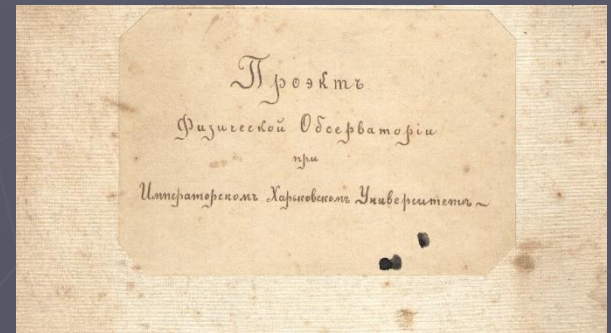 Проэктъ
Физической Обсерваторіи
при
Императорскомъ Харьковскомъ Университетѣ